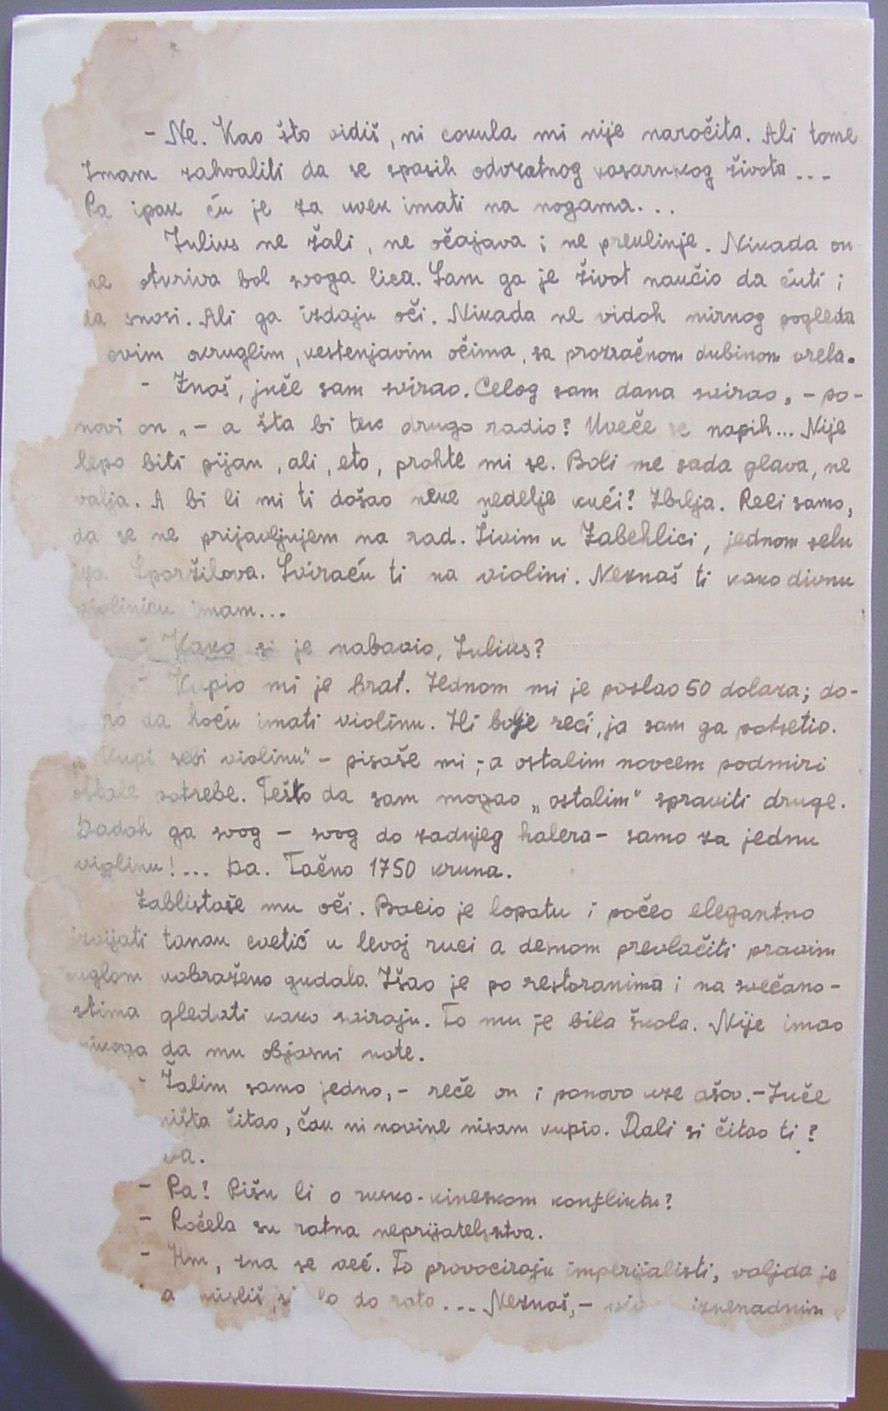 - Ne. Kao što vidiš, ni cokula mi nije naročita. Ali tome
Imam zahvaliti da se spasih odvratnog kasarnkog života...
Pa ipak ću je za uvek imati na nogama...
Julius ne žali, ne očajava i ne preklinje. Nikada on
ne otkriva bol svoga lica. Sam ga je život naučio da ćuti i
da snosi. Ali ga izdaju oči. Nikada ne vidoh mirnog pogleda
ovim okruglim, kestenjavim očima, sa prozračnom dubinom vrela.
- Znaš, juče sam svirao. Celog sam dana svirao, - po-
novi on, - a šta bi tek drugo radio? Uveče se napih... Nije
lepo biti pijan, ali, eto, prohte mi se. Boli me sada glava, ne
valja. A bi li mi ti došao neke nedelje kući? Zbilja. Reci samo,
da se ne prijavljujem na rad. Živim u Zabehlici, jednom selu
iza Sporžilova. Sviraću ti na violini. Neznaš ti kako divnu
violinicu imam...
- Kako si je nabavio, Julius?
- Kupio mi je brat. Jednom mi je poslao 50 dolara; do-
da hoću imati violinu. Ili bolje reći, ja sam ga potsetio.
„Kupi sebi violinu" - pisaše mi, - a ostalim novcem podmiri
ostale potrebe. Tešto da sam mogao „ostalim" spraviti druge.
Dadoh ga svog - svog do zadnjeg halera - samo za jednu
violinu!... Da. Tačno 1750 kruna.
Zablistaše mu oči. Bacio je lopatu i počeo elegantno
izvijati tanku cvetić u levoj ruci a desnom prevlačiti pravim
uglom uobraženo gudalo. Išao je po restoranima i na svečano-
stima gledati kako sviraju. To mu je bila škola. Nije imao
nikoga da mu objasni note.
- Žalim samo jedno, - reče on i ponovo uze ašov. - Juče
ništa čitao, čak ni novine nisam kupio. Dali si čitao ti?
- Pa! Pišu li o rusko-kineskom konfliktu?
- Počela su ratna neprijateljstva.
- Hm, zna se već. To provociraju imperijalisti, valjda je
a misliš, do rata... Neznaš, - iznenadnim